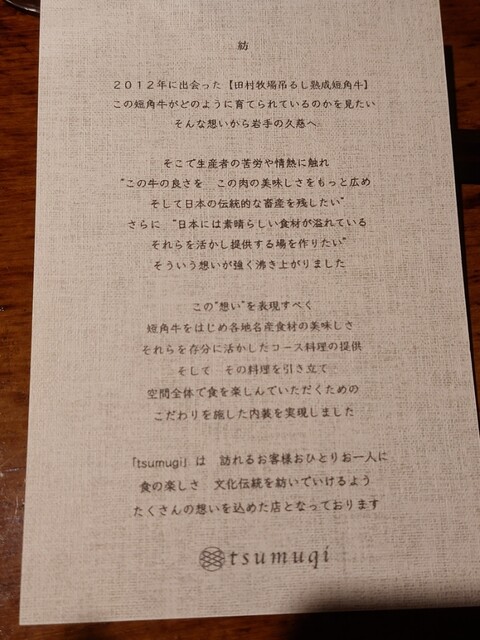 紡
2012年に出会った【田村牧場吊るし熟成短角牛】
この短角牛がどのように育てられているのかを見たい
そんな想いから岩手の久慈へ
そこで生産者の苦労や情熱に触れ
“この牛の良さを　この肉の美味しさをもっと広め
そして日本の伝統的な畜産を残したい”
さらに　“日本には素晴らしい食材が溢れている
それらを活かし提供する場を作りたい”
そういう想いが強く沸き上がりました
この“想い”を表現すべく
短角牛をはじめ各地名産食材の美味しさ
それらを存分に活かしたコース料理の提供
そして　その料理を引き立て
空間全体で食を楽しんでいただくための
こだわりを施した内装を実現しました
「tsumugi」は　訪れるお客様おひとりお一人に
食の楽しさ　文化伝統を紡いでいけるよう
たくさんの想いを込めた店となっております
tsumugi